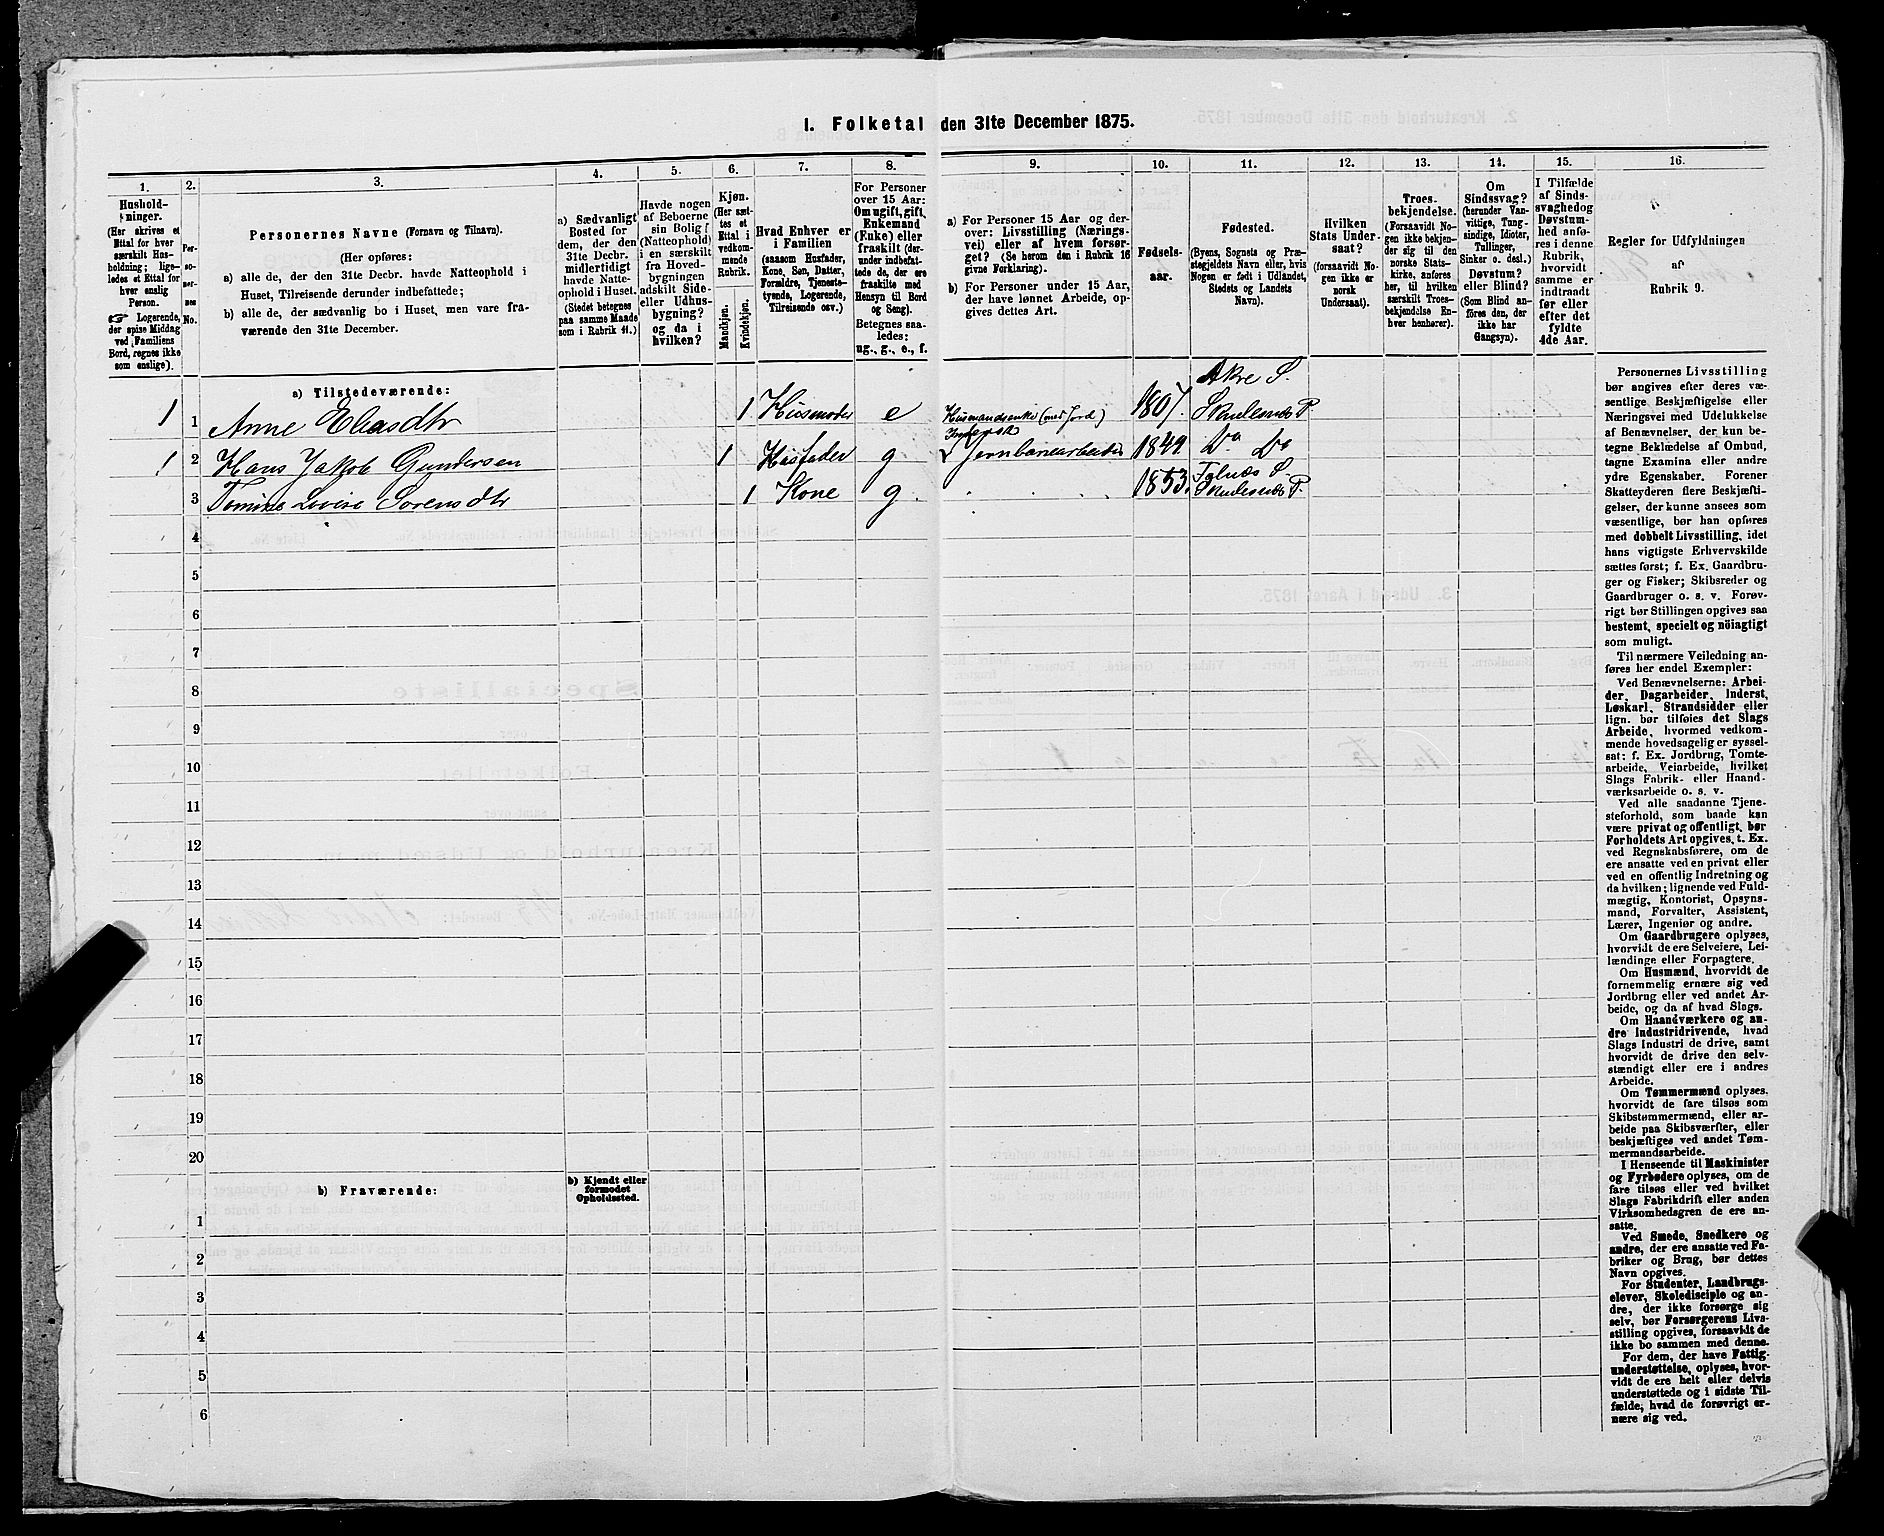 1. Folketal den 31te December 1875.
1.
2.
3.
4.
5.
6.
7.
8.
9.
10.
11.
12.
13.
14.
15.
16.
Hushold-
ninger.
(Her skrives et
Ettal for hver
særskilt Hus-
holdning; lige-
ledes et Ettal for
hver enslig
Person.
☞ Logerende,
der spise Middag
ved Familiens
Bord, regnes ikke
som enslige).
Per-
so-
ner-
nes
No.
Personernes Navne (Fornavn og Tilnavn).
(Her opføres:
a) alle de, der den 31te Decbr. havde Natteophold i
Huset, Tilreisende derunder indbefattede;
b) alle de, der sædvanlig bo i Huset, men vare fra-
værende den 31te December.
a) Sædvanligt
Bosted for
dem, der den
31te Decbr.
midlertidigt
havde Natte-
ophold i Huset.
(Stedet betegnes
paa samme Maade
som i Rubrik 11.)
Havde nogen
af Beboerne
sin Bolig
(Natteophold)
i en særskilt
fra Hoved-
bygningen
adskilt Side-
eller Udhus-
bygning?
og da i
hvilken?
Kjøn.
(Her sæt-
tes et
Ettal i
vedkom-
mende
Rubrik.
Mandkjøn.
Kvindekjøn.
Hvad Enhver er
i Familien
(saasom Husfader,
Kone, Søn, Datter,
Forældre, Tjeneste-
tyende, Logerende,
Tilreisende osv.)
For Personer
over 15 Aar:
Om ugift, gift,
Enkemand
(Enke) eller
fraskilt (der-
under indbefat-
tede de, der ere
fraskilte med
Hensyn til Bord
og Seng).
Betegnes saa-
ledes:
ug., g., e., f.
a) For Personer 15 Aar og der-
over: Livsstilling (Nærings-
vei) eller af hvem forsør-
get? (Se herom den i Rubrik 16
givne Forklaring).
b) For Personer under 15 Aar,
der have lønnet Arbeide, op-
gives dettes Art.
Fødsels-
aar.
Fødested.
(Byens, Sognets og Præ-
stegjeldets Navn eller, hvis
Nogen er født i Udlandet,
Stedets og Landets
Navn).
Hvilken
Stats Under-
saat?
(forsaavidt No-
gen ikke er
norsk
Undersaat).
Troes-
bekjendelse.
(Forsaavidt No-
gen ikke bekjen-
der sig til den
norske Stats-
kirke, anføres
her, til hvilken
særskilt Troes-
bekjendelse En-
hver henhører).
Om
Sindssvag?
(herunder Van-
vittige, Tung-
sindige, Idioter,
Tullinger,
Sinker o. desl.)
Døvstum?
eller Blind?
(Som Blind an-
føres den, der
ikke har
Gangsyn).
I Tilfælde
af Sinds-
svaghed og
Døvstum-
hed anfø-
res i denne
Rubrik,
hvorvidt
samme er
indtraadt
før eller
efter det
fyldte
4de Aar.
Regler for Udfyldningen
af
Rubrik 9.
a) Tilstedeværende:
Akre S.
1 1 Anne Eliasdtr 1 Husmoder e Husmandsenke (med Jord) 1807. Skudesnæs P.
Inderst
1 2 Hans Jakob Gundersen 1 Husfader g Jernbanearbeider 1849 Do Do
Falnæs S.
3 Tomine Lovise Sorensdtr 1 Kone g 1853. Skudesnæs P.
4
5
6
7
8
9
10
11
12
13
14
15
16
17
18
19
20
b) Fraværende:
b) Kjendt eller
formodet
Opholdssted.
1
2
3
4
5
6
Personernes Livsstilling
bør angives efter deres væ-
sentlige Beskjæftigelse eller
Næringsvei med Udelukkelse
af Benævnelser, der kun be-
tegne Beklædelse af Ombud,
tagne Examina eller andre
ydre Egenskaber. Forener
Skatteyderen flere Beskjæfti-
gelser, der kunne ansees som
væsentlige, bør han opføres
med dobbelt Livsstilling, idet
hans vigtigste Erhvervskilde
sættes først; f. Ex. Gaardbru-
ger og Fisker; Skibsreder og
Gaardbruger o. s. v. Forøv-
rigt bør Stillingen opgives saa
bestemt, specielt og nöiagtigt
som muligt.
Til nærmere Veiledning an-
føres her endel Exempler:
Ved Benævnelserne: Arbei-
der, Dagarbeider, Inderst,
Løskarl, Strandsidder eller
lign. bør tilføies det Slags
Arbeide, hvormed vedkom-
mende hovedsagelig er syssel-
sat: f. Ex. Jordbrug, Tomte-
arbeide, Veiarbeide, hvilket
Slags Fabrik- eller Haand-
værksarbeide o. s. v.
Ved alle saadanne Tjene-
steforhold, som baade kan
være privat og offentligt, bør
Forholdets Art opgives, t. Ex.
ved Regnskabsførere, om de
ere ansatte ved en privat eller
ved en offentlig Indretning og
da hvilken; lignende ved Fuld-
mægtig, Kontorist, Opsyns-
mand, Forvalter, Assistent,
Lærer, Ingeniør og andre.
Om Gaardbrugere oplyses,
hvorvidt de ere Selveiere, Lei-
lændinge eller Forpagtere.
Om Husmænd, hvorvidt de
fornemmelig ernære sig ved
Jordbrug eller ved andet Ar-
beide, og da af hvad Slags.
Om Haandværkere og an-
dre Industridrivende, hvad
Slags Industri de drive, samt
hvorvidt de drive den selv-
stændigt eller ere i andres
Arbeide.
Om Tømmermænd oplyses,
hvorvidt de fare tilsøs som
Skibstømmermænd, eller ar-
beide paa Skibsværfter, eller
beskjæftiges ved andet Tøm-
mermandsarbeide.
I Henseende til Maskinister
og Fyrbødere oplyses, om de
fare tilsøs eller ved hvilket
Slags Fabrikdrift eller anden
Virksomhedsgren de ere an-
satte.
Ved Smede, Snedkere og
andre, der ere ansatte ved Fa-
briker og Brug, bør dettes
Navn opgives.
For Studenter, Landbrugs-
elever, Skoledisciple og an-
dre, der ikke forsørge sig
selv, bør Forsørgerens Livs-
stilling opgives, forsaavidt de
ikke bo sammen med denne.
For dem, der have Fattig-
understøttelse, oplyses, hvor-
vidt de ere helt eller delvis
understøttede og i sidste Til-
fælde, hvad de forøvrigt er-
nære sig ved.